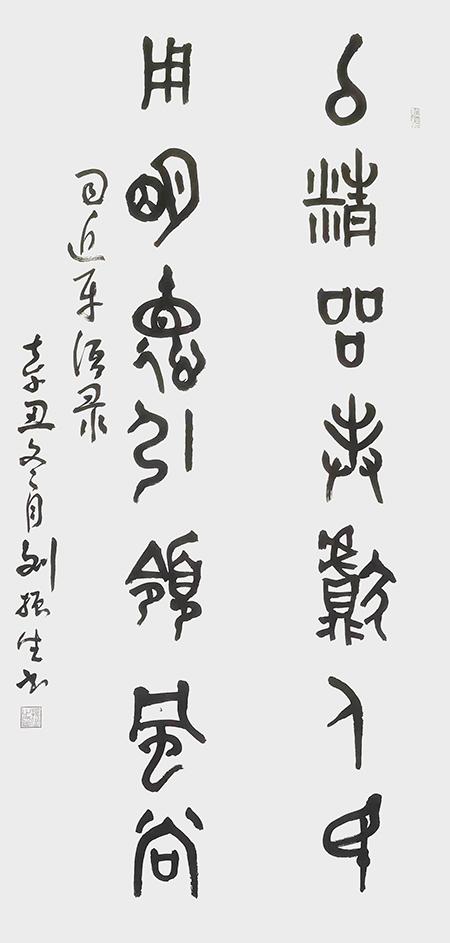 以精品奉献人民
用明德引领风尚
习近平语录
辛丑冬月刘振生书